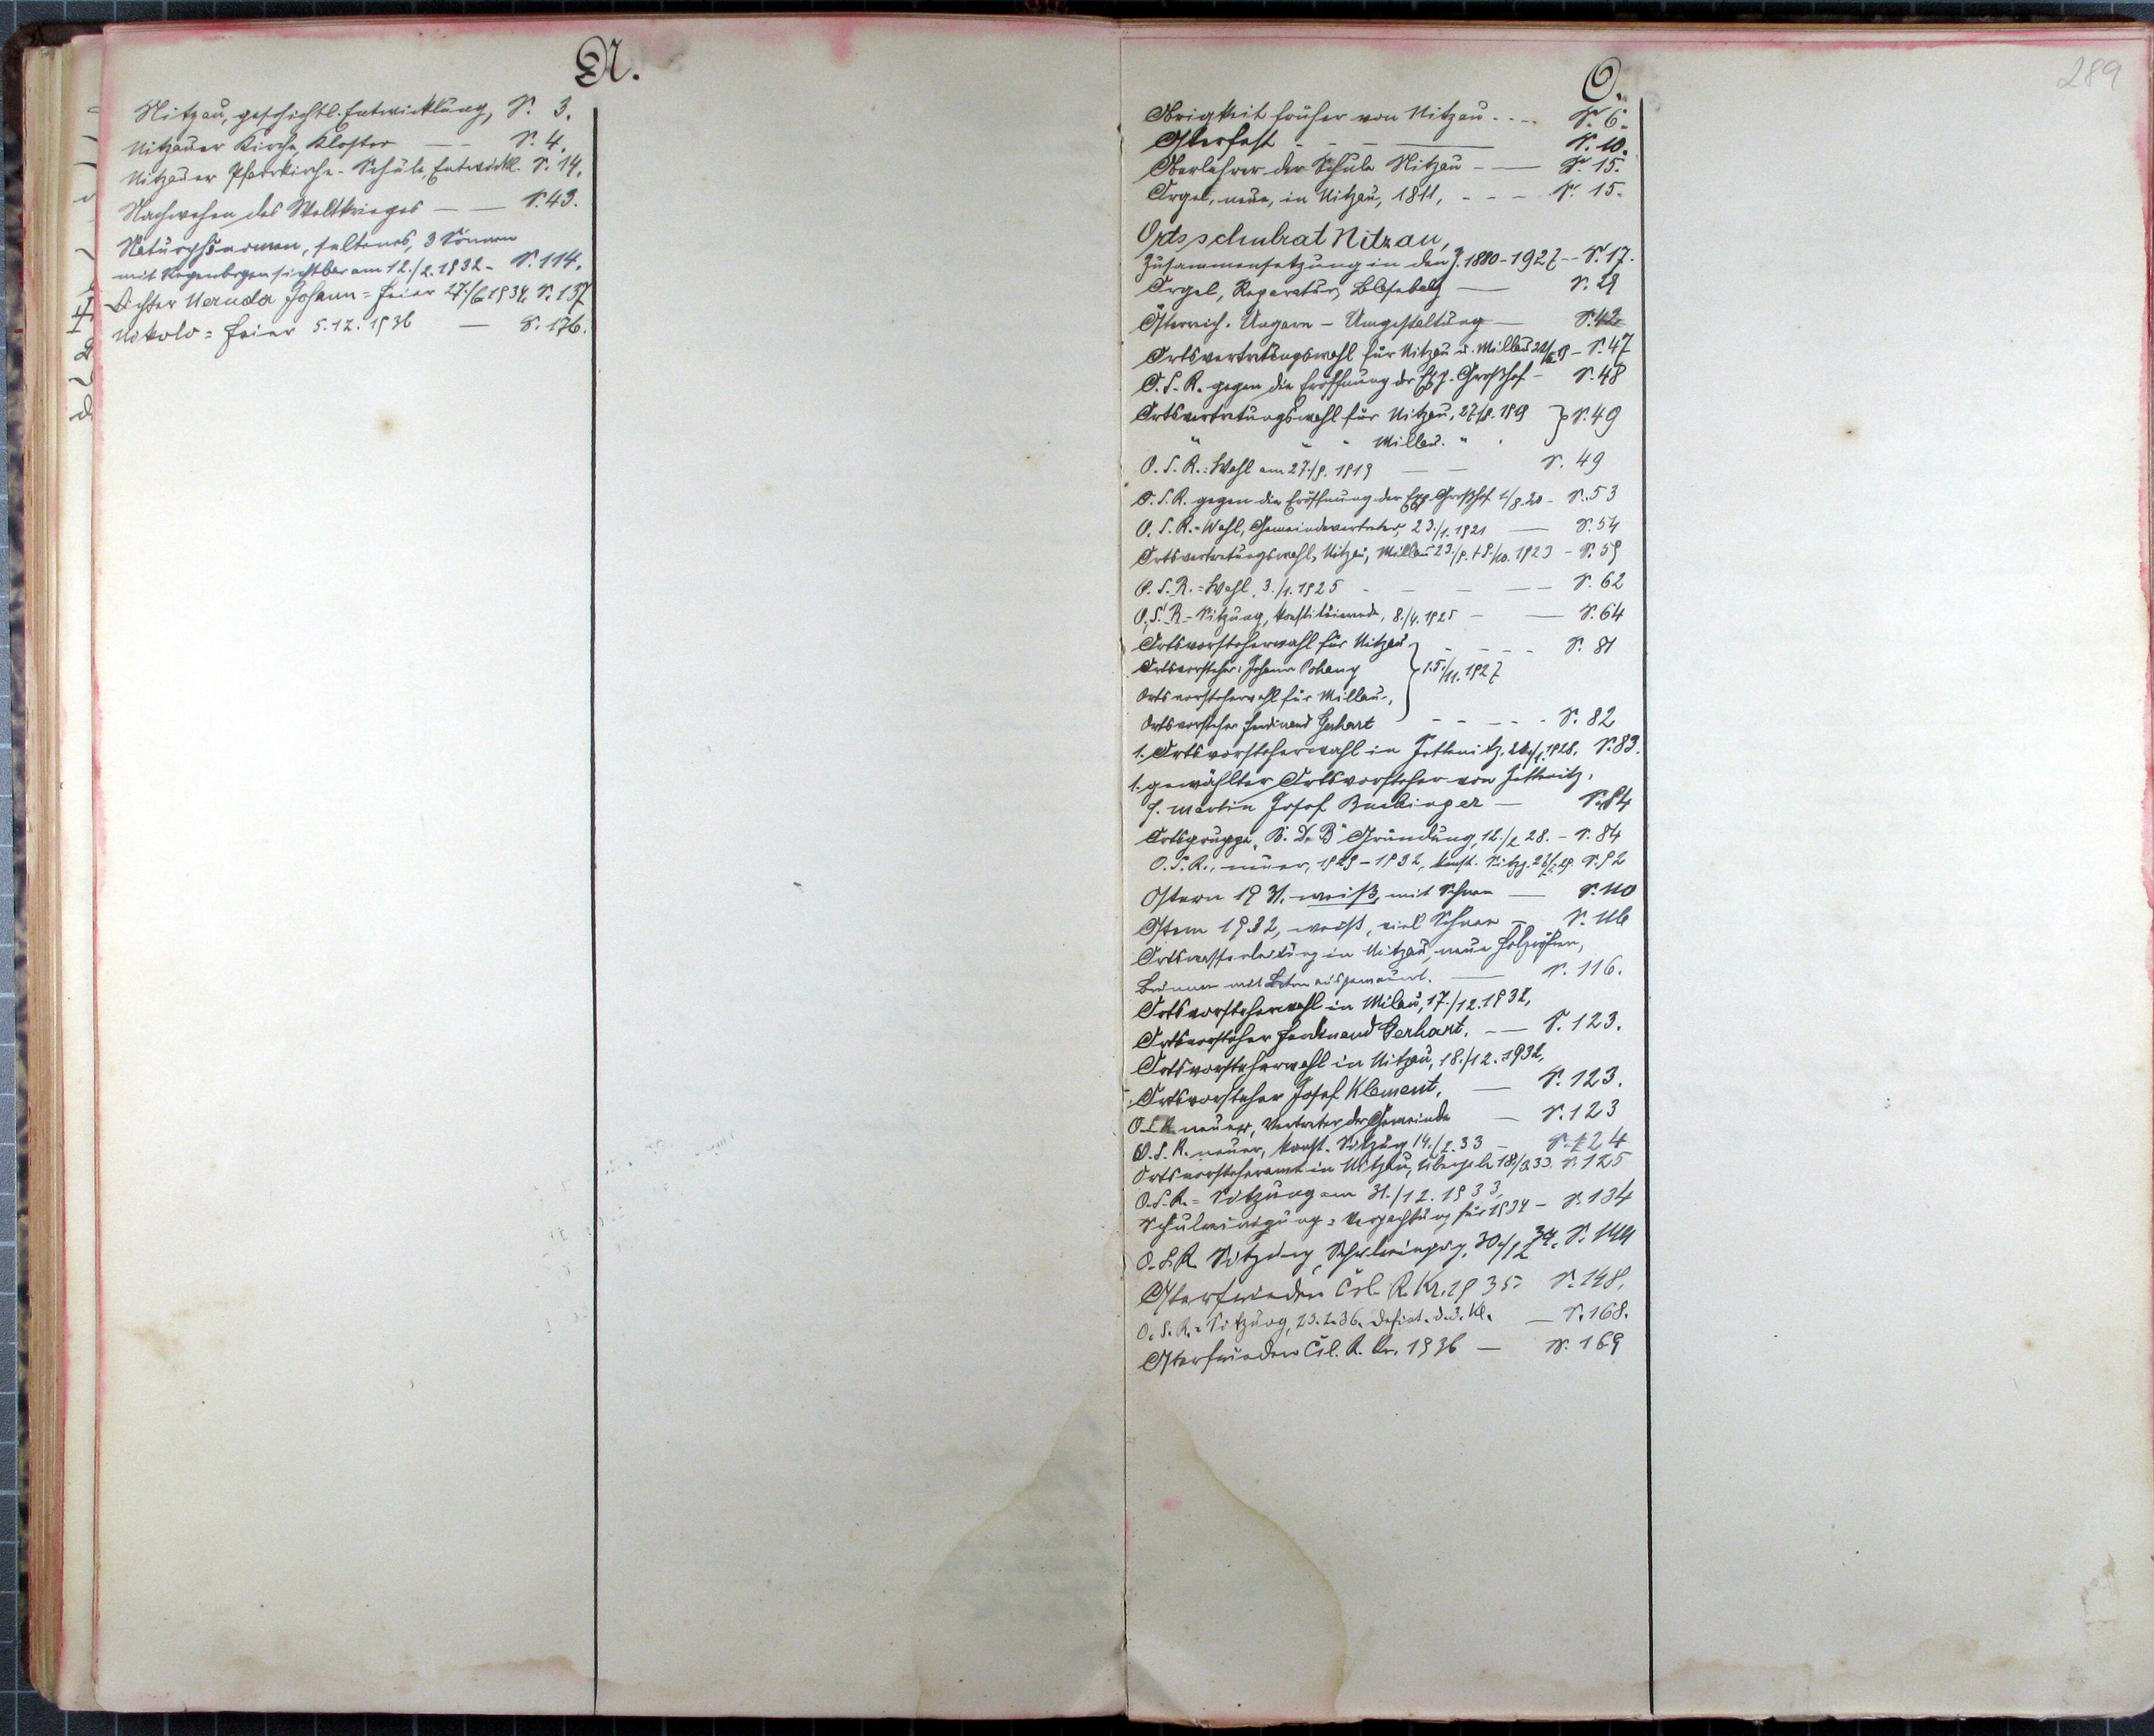 N.
Nitzau, geschichtl. Entwicklung, S. 3.
Nitzauer Kirche, Kloster — — S. 4.
Nitzauer Pfarrkirche - Schule Entwickl. S. 14.
Nachwehen des Weltkrieges — — S. 43.
Naturphänomen, seltenes, 3 Sonnen
mit Regenbogen sichtbar am 12./2. 1932 - S. 114.
Dichter Neruda Johann = Feier 27./6 1934. S. 137
Nikolo = Feier 5.12.1936 — S. 176.
289
O.
Obrigkeit früher von Nitzau .... S. 6.
Osterfest - - - — S. 10.
Oberlehrer der Schule Nitzau - — S. 15.
Orgel, neue, in Nitzau, 1811, - - - S. 15.
Ortsschulrat Nitzau,
Zusammensetzung in den J. 1880-1927 -- S. 17.
Orgel, Reparatur, Blasebalg — S. 29
Österreich-Ungarn - Umgestaltung — S. 42
Ortsvertretungswahl für Nitzau u. Millau - S. 47
O.S.R. gegen die Eröffnung der Exp. Großhof - S. 48
Ortsvertretungswahl für Nitzau, 27/9. 1919 } S. 49
" " " Millau. " "
O.S.R. = Wahl am 27./9. 1919 — — S. 49
O.S.R. gegen die Eröffnung der Exp. Großhof 1/8. 20 - S. 53
O.S.R. = Wahl, Gemeindevertreter, 23./1. 1921 — S. 54
Ortsvertretungswahl, Nitzau, Millau 23./9. + 9./10. 1923 - S. 59
O.S.R. = Wahl, 3./1. 1925 - - - — S. 62
O.S.R. - Sitzung, konstituierende, 8./4. 1925 - — S. 64
Ortsvorsteherwahl für Nitzau - - - - S. 81
Ortsvorsteher: Johann } 15./11. 1927
Ortsvorsteherwahl für Millau,
Ortsvorsteher Ferdinand Gerhart - - - - - S. 82
1. Ortsvorsteherwahl in 1928. S. 83.
1. gewählter Ortsvorsteher von
H. Martin Josef Buchinger — S. 84
Ortsgruppe, "B. d. B" Gründung, 12./2 28. - S. 84
O.S.R., neuer, 1929-1932, konst. Sitzg. S. 92
Ostern 1931, weiß, mit Schnee — S. 110
Ostern 1932, weiß, viel Schnee - S. 116
Ortswasserleitung in Nitzau, neue Holzröhren,
Brunnen mit Beton ausgemauert. — S. 116.
Ortsvorsteherwahl in Milau, 17./12. 1932,
Ortsvorsteher Ferdinand Gerhart. - — S. 123.
Ortsvorsteherwahl in Nitzau, 18./12. 1932,
Ortsvorsteher Josef Klement. — S. 123.
O.S.R. neuer, Vertreter der Gemeinde — S. 123
O.S.R. neuer, konst. Sitzung 14./2. 33 - S. 124
Ortsvorsteheramt in Nitzau, Übergabe 18/3 33. S. 125
O.S.R. = Sitzung am 31./12. 1933,
Schulreinigung = Verpachtung für 1934 - S. 134
O.S.R. Sitzung, Schulreinigg. 30./12 34. S. 144
Osterfrieden Čsl. R. Kr. 1935 S. 148.
O.S.R. = Sitzung, 23.2.36. Definit. d. 3. Kl. — S. 168.
Osterfrieden Čsl. R. Kr. 1936 — S. 169